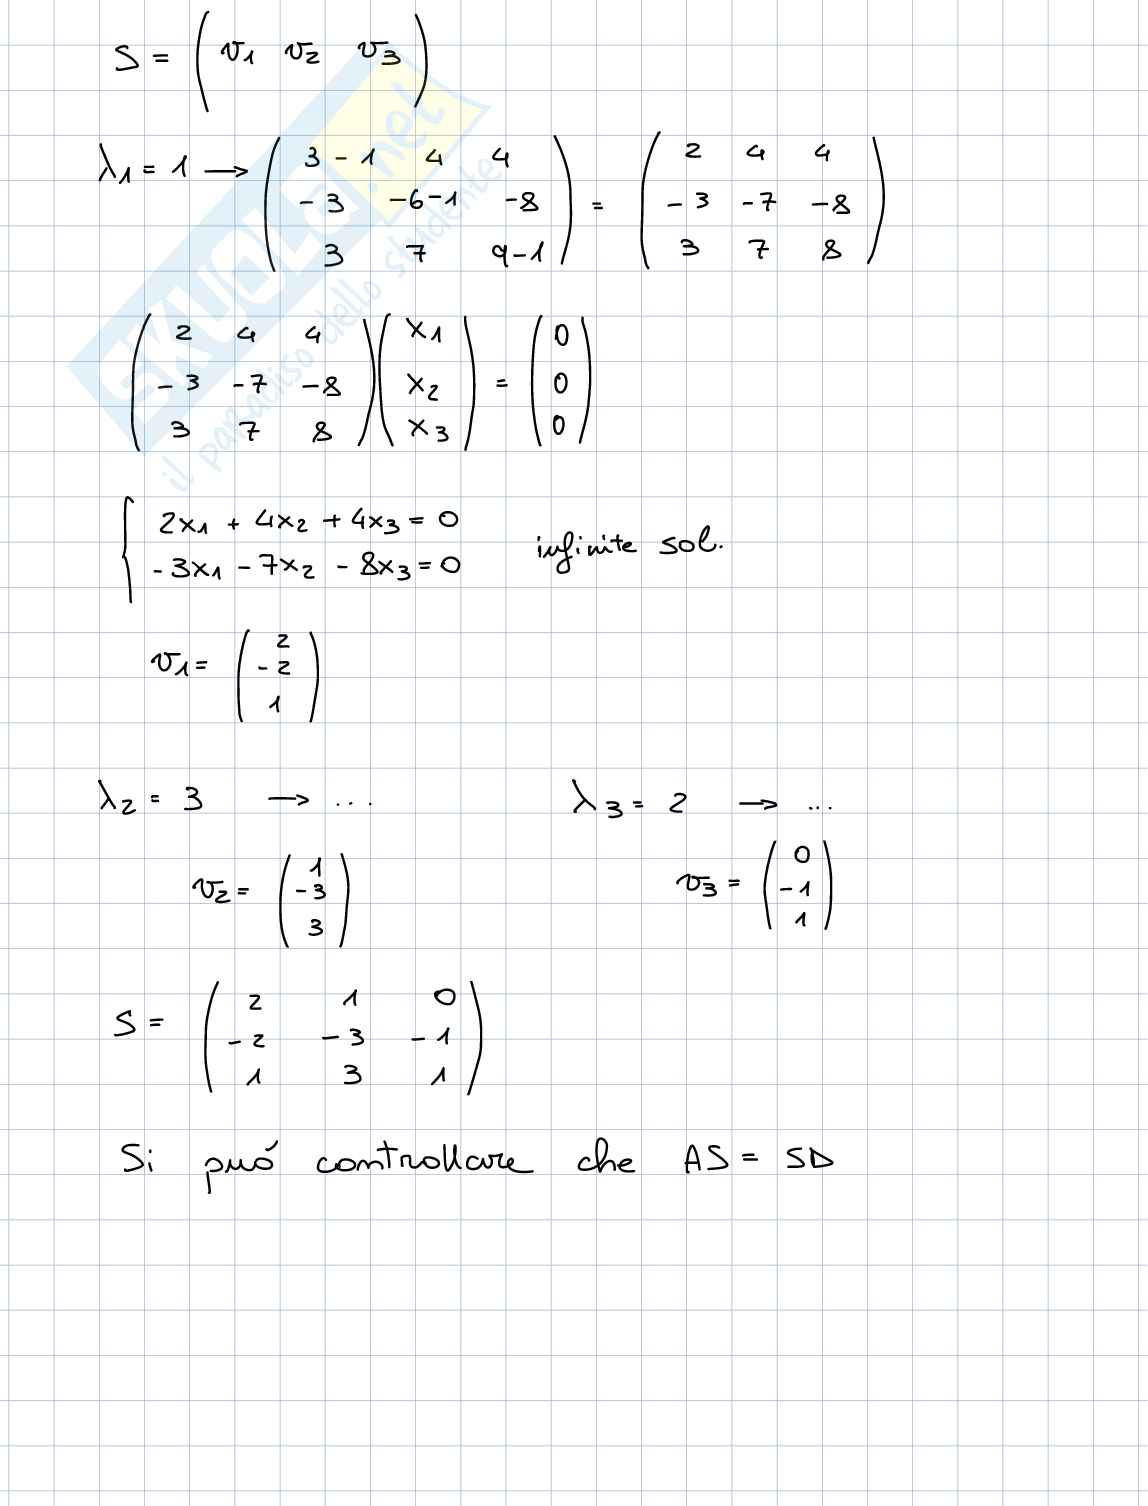 S = ( v1 v2 v3 )
λ1 = 1 → ( 3 - 1 4 4 ) = ( 2 4 4 )
( -3 -6-1 -8 ) = ( -3 -7 -8 )
( 3 7 9-1 ) ( 3 7 8 )
( 2 4 4 ) ( x1 ) ( 0 )
( -3 -7 -8 ) ( x2 ) = ( 0 )
( 3 7 8 ) ( x3 ) ( 0 )
{ 2x1 + 4x2 + 4x3 = 0
-3x1 - 7x2 - 8x3 = 0 infinite sol.
v1 = ( 2
-2
1 )
λ2 = 3 → ... λ3 = 2 → ...
v2 = ( 1 -3 3 ) v3 = ( 0 -1 1 )
S = ( 2 1 0
-2 -3 -1
1 3 1 )
Si puó controllare che AS = SD
SKUOLA.net
il paradiso dello studente